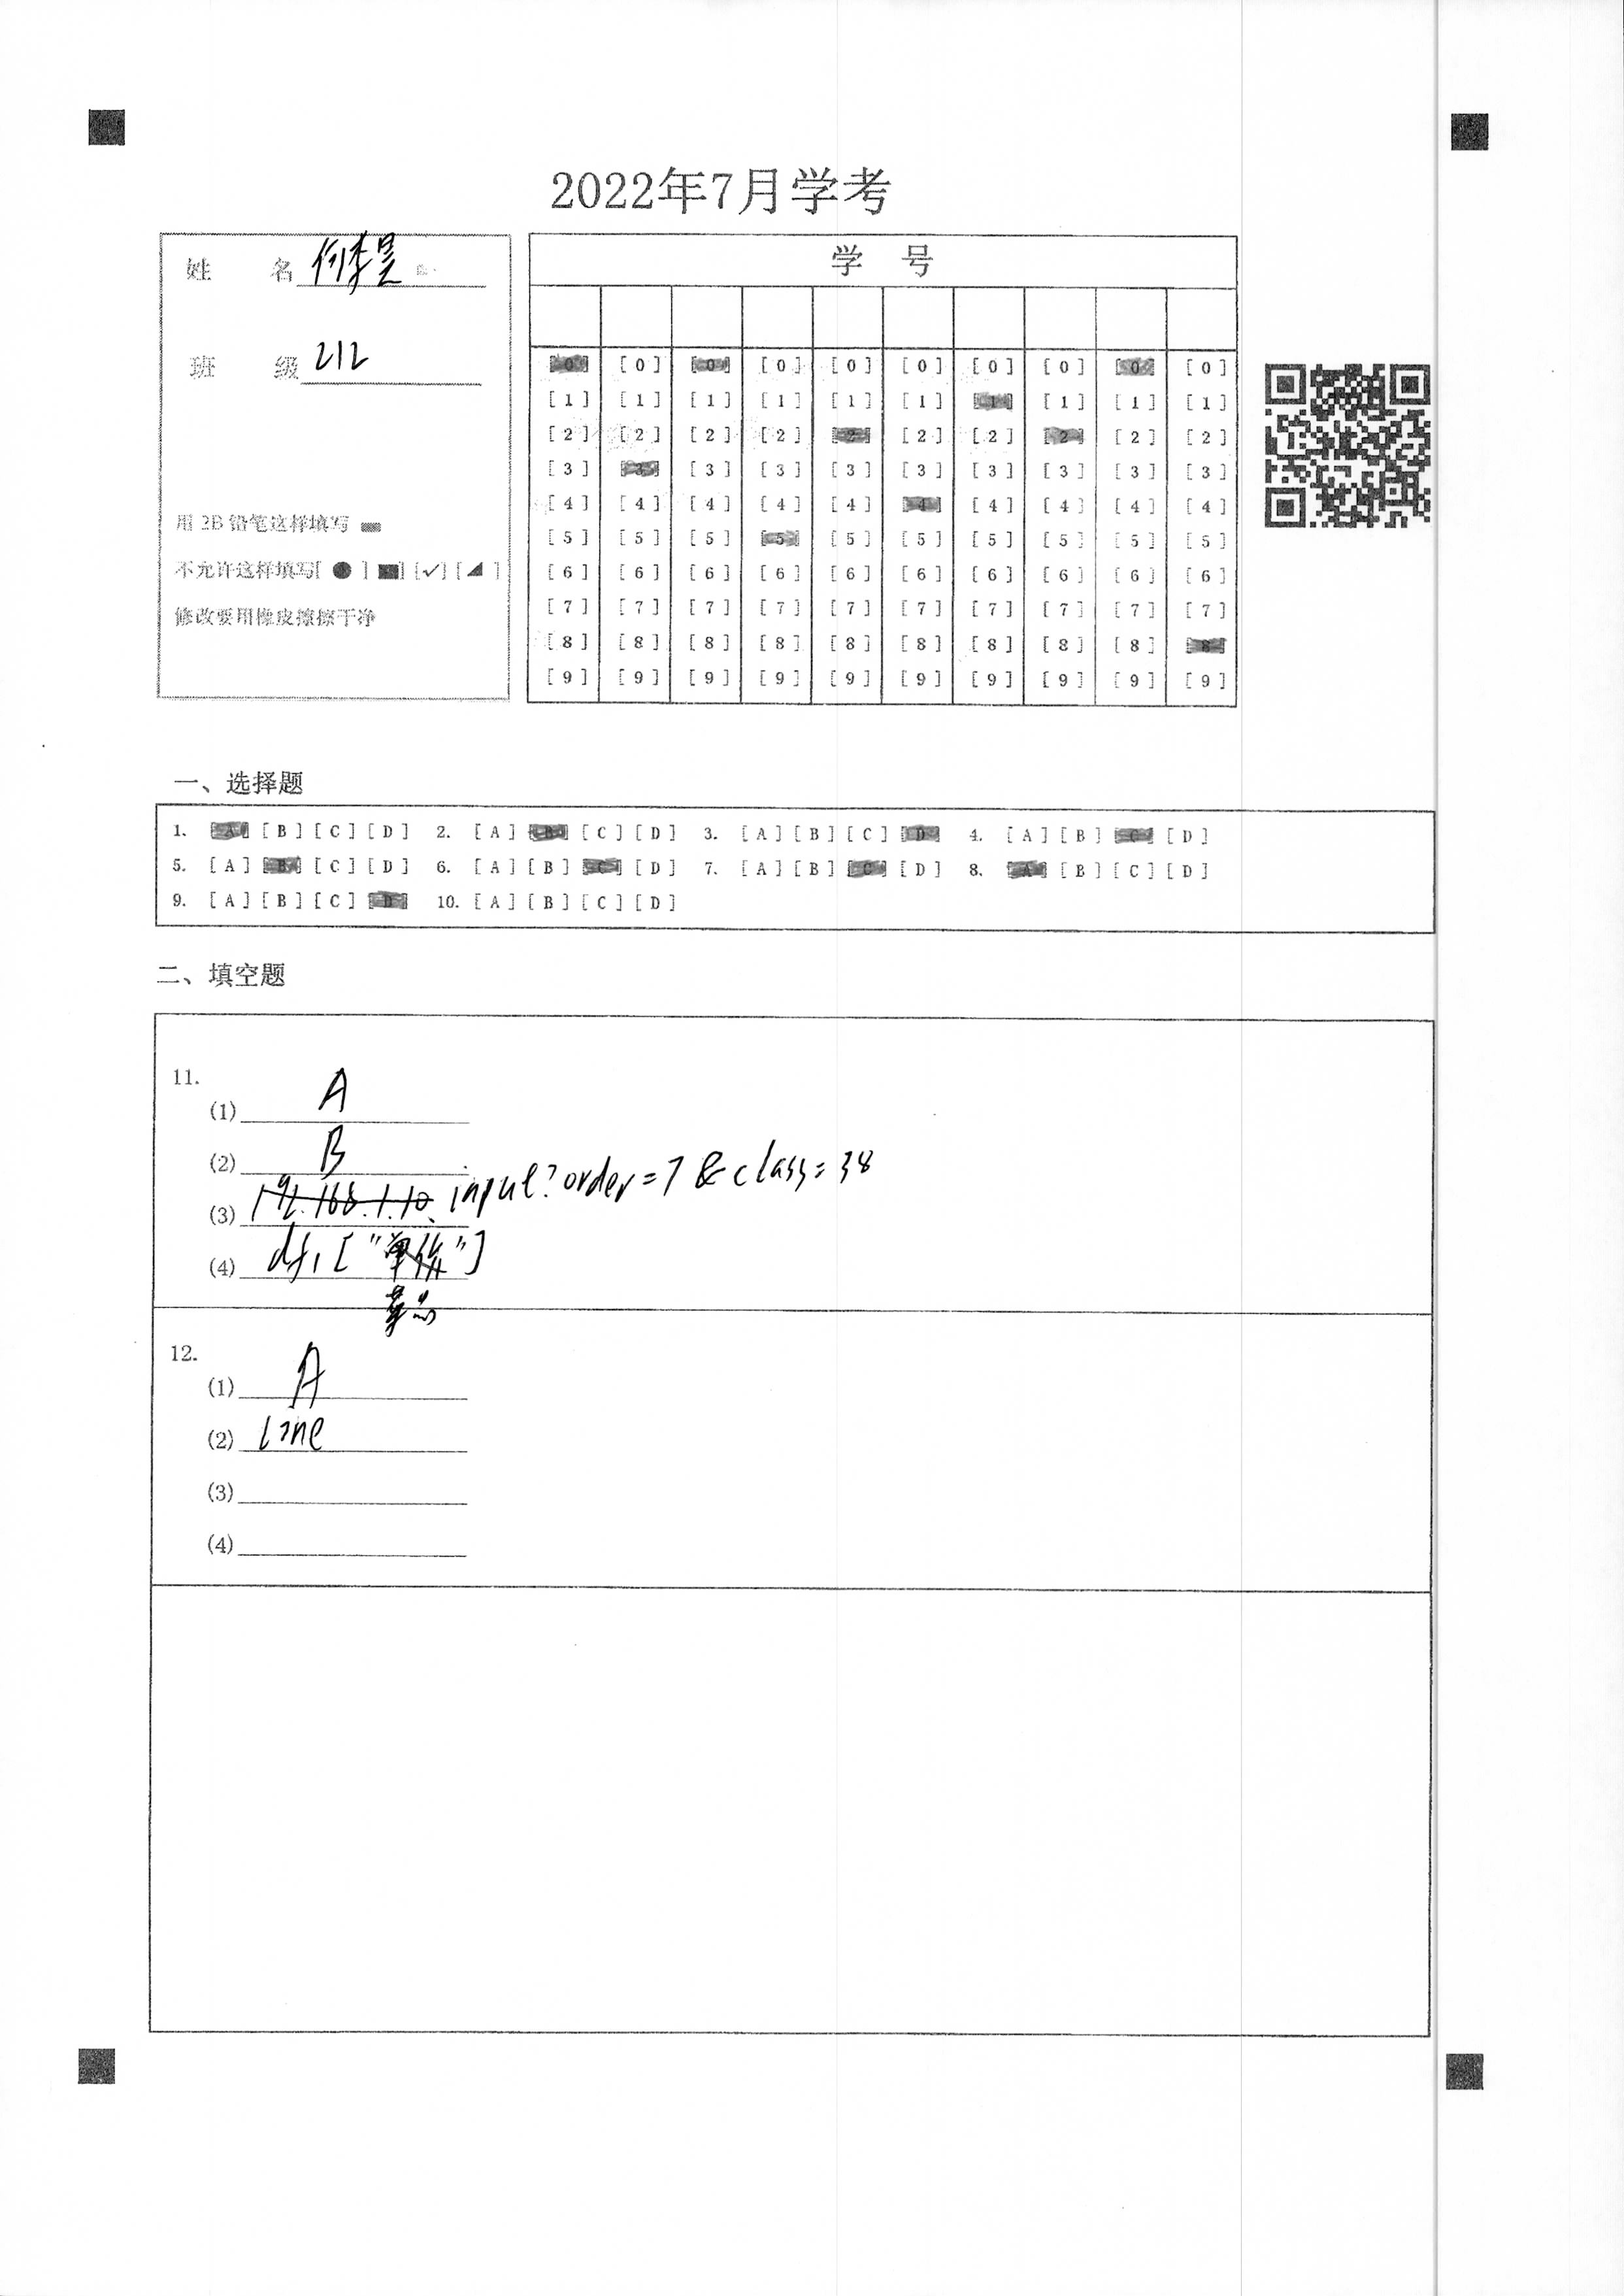 2022年7月学考
姓 名 何李昊
班 级 212
用 2B 铅笔这样填写
不允许这样填写[ ● ] [■] [✓] [◢ ]
修改要用橡皮擦擦干净
学 号
[0] [0] [0] [0] [0] [0] [0] [0] [0] [0]
[1] [1] [1] [1] [1] [1] [1] [1] [1] [1]
[2] [2] [2] [2] [2] [2] [2] [2] [2] [2]
[3] [3] [3] [3] [3] [3] [3] [3] [3] [3]
[4] [4] [4] [4] [4] [4] [4] [4] [4] [4]
[5] [5] [5] [5] [5] [5] [5] [5] [5] [5]
[6] [6] [6] [6] [6] [6] [6] [6] [6] [6]
[7] [7] [7] [7] [7] [7] [7] [7] [7] [7]
[8] [8] [8] [8] [8] [8] [8] [8] [8] [8]
[9] [9] [9] [9] [9] [9] [9] [9] [9] [9]
一、选择题
1. [A] [B] [C] [D] 2. [A] [B] [C] [D] 3. [A] [B] [C] [D] 4. [A] [B] [C] [D]
5. [A] [B] [C] [D] 6. [A] [B] [C] [D] 7. [A] [B] [C] [D] 8. [A] [B] [C] [D]
9. [A] [B] [C] [D] 10. [A] [B] [C] [D]
二、填空题
11.
(1) A
(2) B
(3) 192.168.1.10. input?order=7&class=38
(4) df1["单价"]
12.
(1) A
(2) line
(3)
(4)